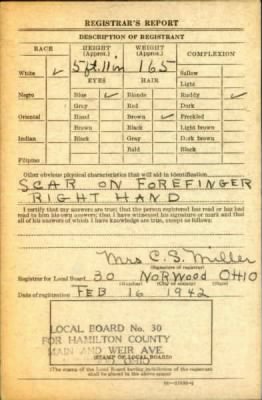 REGISTRAR'S REPORT
DESCRIPTION OF REGISTRANT
RACE HEIGHT (Approx.) WEIGHT (Approx.) COMPLEXION
White ✓ 5 ft. 11 in 165 Sallow
EYES HAIR Light
Negro Blue ✓ Blonde Ruddy ✓
Gray Red Dark
Oriental Hazel Brown ✓ Freckled
Brown Black Light brown
Indian Black Gray Dark brown
Bald Black
Filipino
Other obvious physical characteristics that will aid in identification
SCAR ON FOREFINGER
RIGHT HAND
I certify that my answers are true; that the person registered has read or has had
read to him his own answers; that I have witnessed his signature or mark and that
all of his answers of which I have knowledge are true, except as follows:
Mrs C. S. Miller
(Signature of registrar)
Registrar for Local Board 30 NORWOOD OHIO
(Number) (City or county) (State)
Date of registration FEB 16 1942
LOCAL BOARD No. 30
FOR HAMILTON COUNTY
MAIN AND WEIR AVE.
OHIO
(STAMP OF LOCAL BOARD)
(The stamp of the Local Board having jurisdiction of the registrant
shall be placed in the above space)